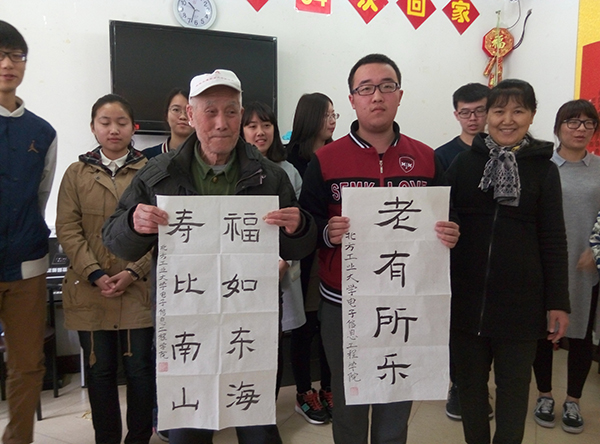 次回家
福
福如东海
寿比南山
北方工业大学电子信息工程学院
老有所乐
北方工业大学电子信息工程学院
SEMK LOVE